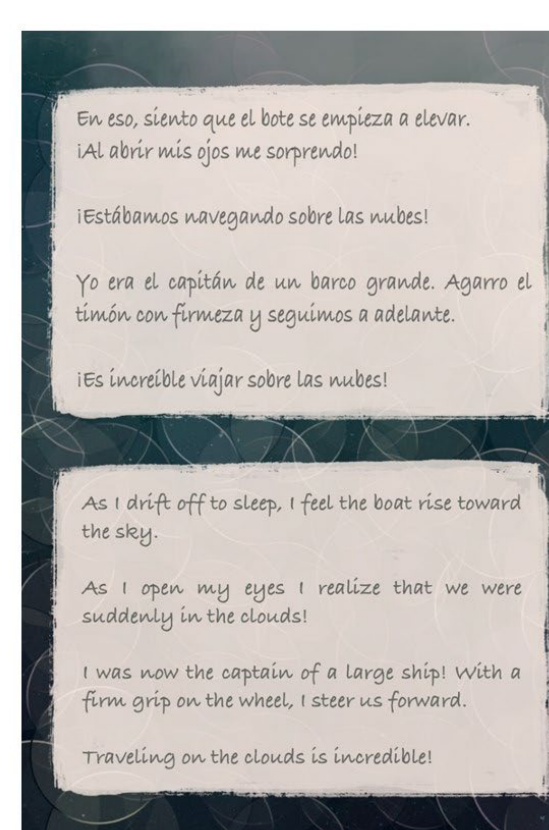 En eso, siento que el bote se empieza a elevar.
¡Al abrir mis ojos me sorprendo!
¡Estábamos navegando sobre las nubes!
Yo era el capitán de un barco grande. Agarro el
timón con firmeza y seguimos a adelante.
¡Es increíble viajar sobre las nubes!
As I drift off to sleep, I feel the boat rise toward
the sky.
As I open my eyes I realize that we were
suddenly in the clouds!
I was now the captain of a large ship! With a
firm grip on the wheel, I steer us forward.
Traveling on the clouds is incredible!